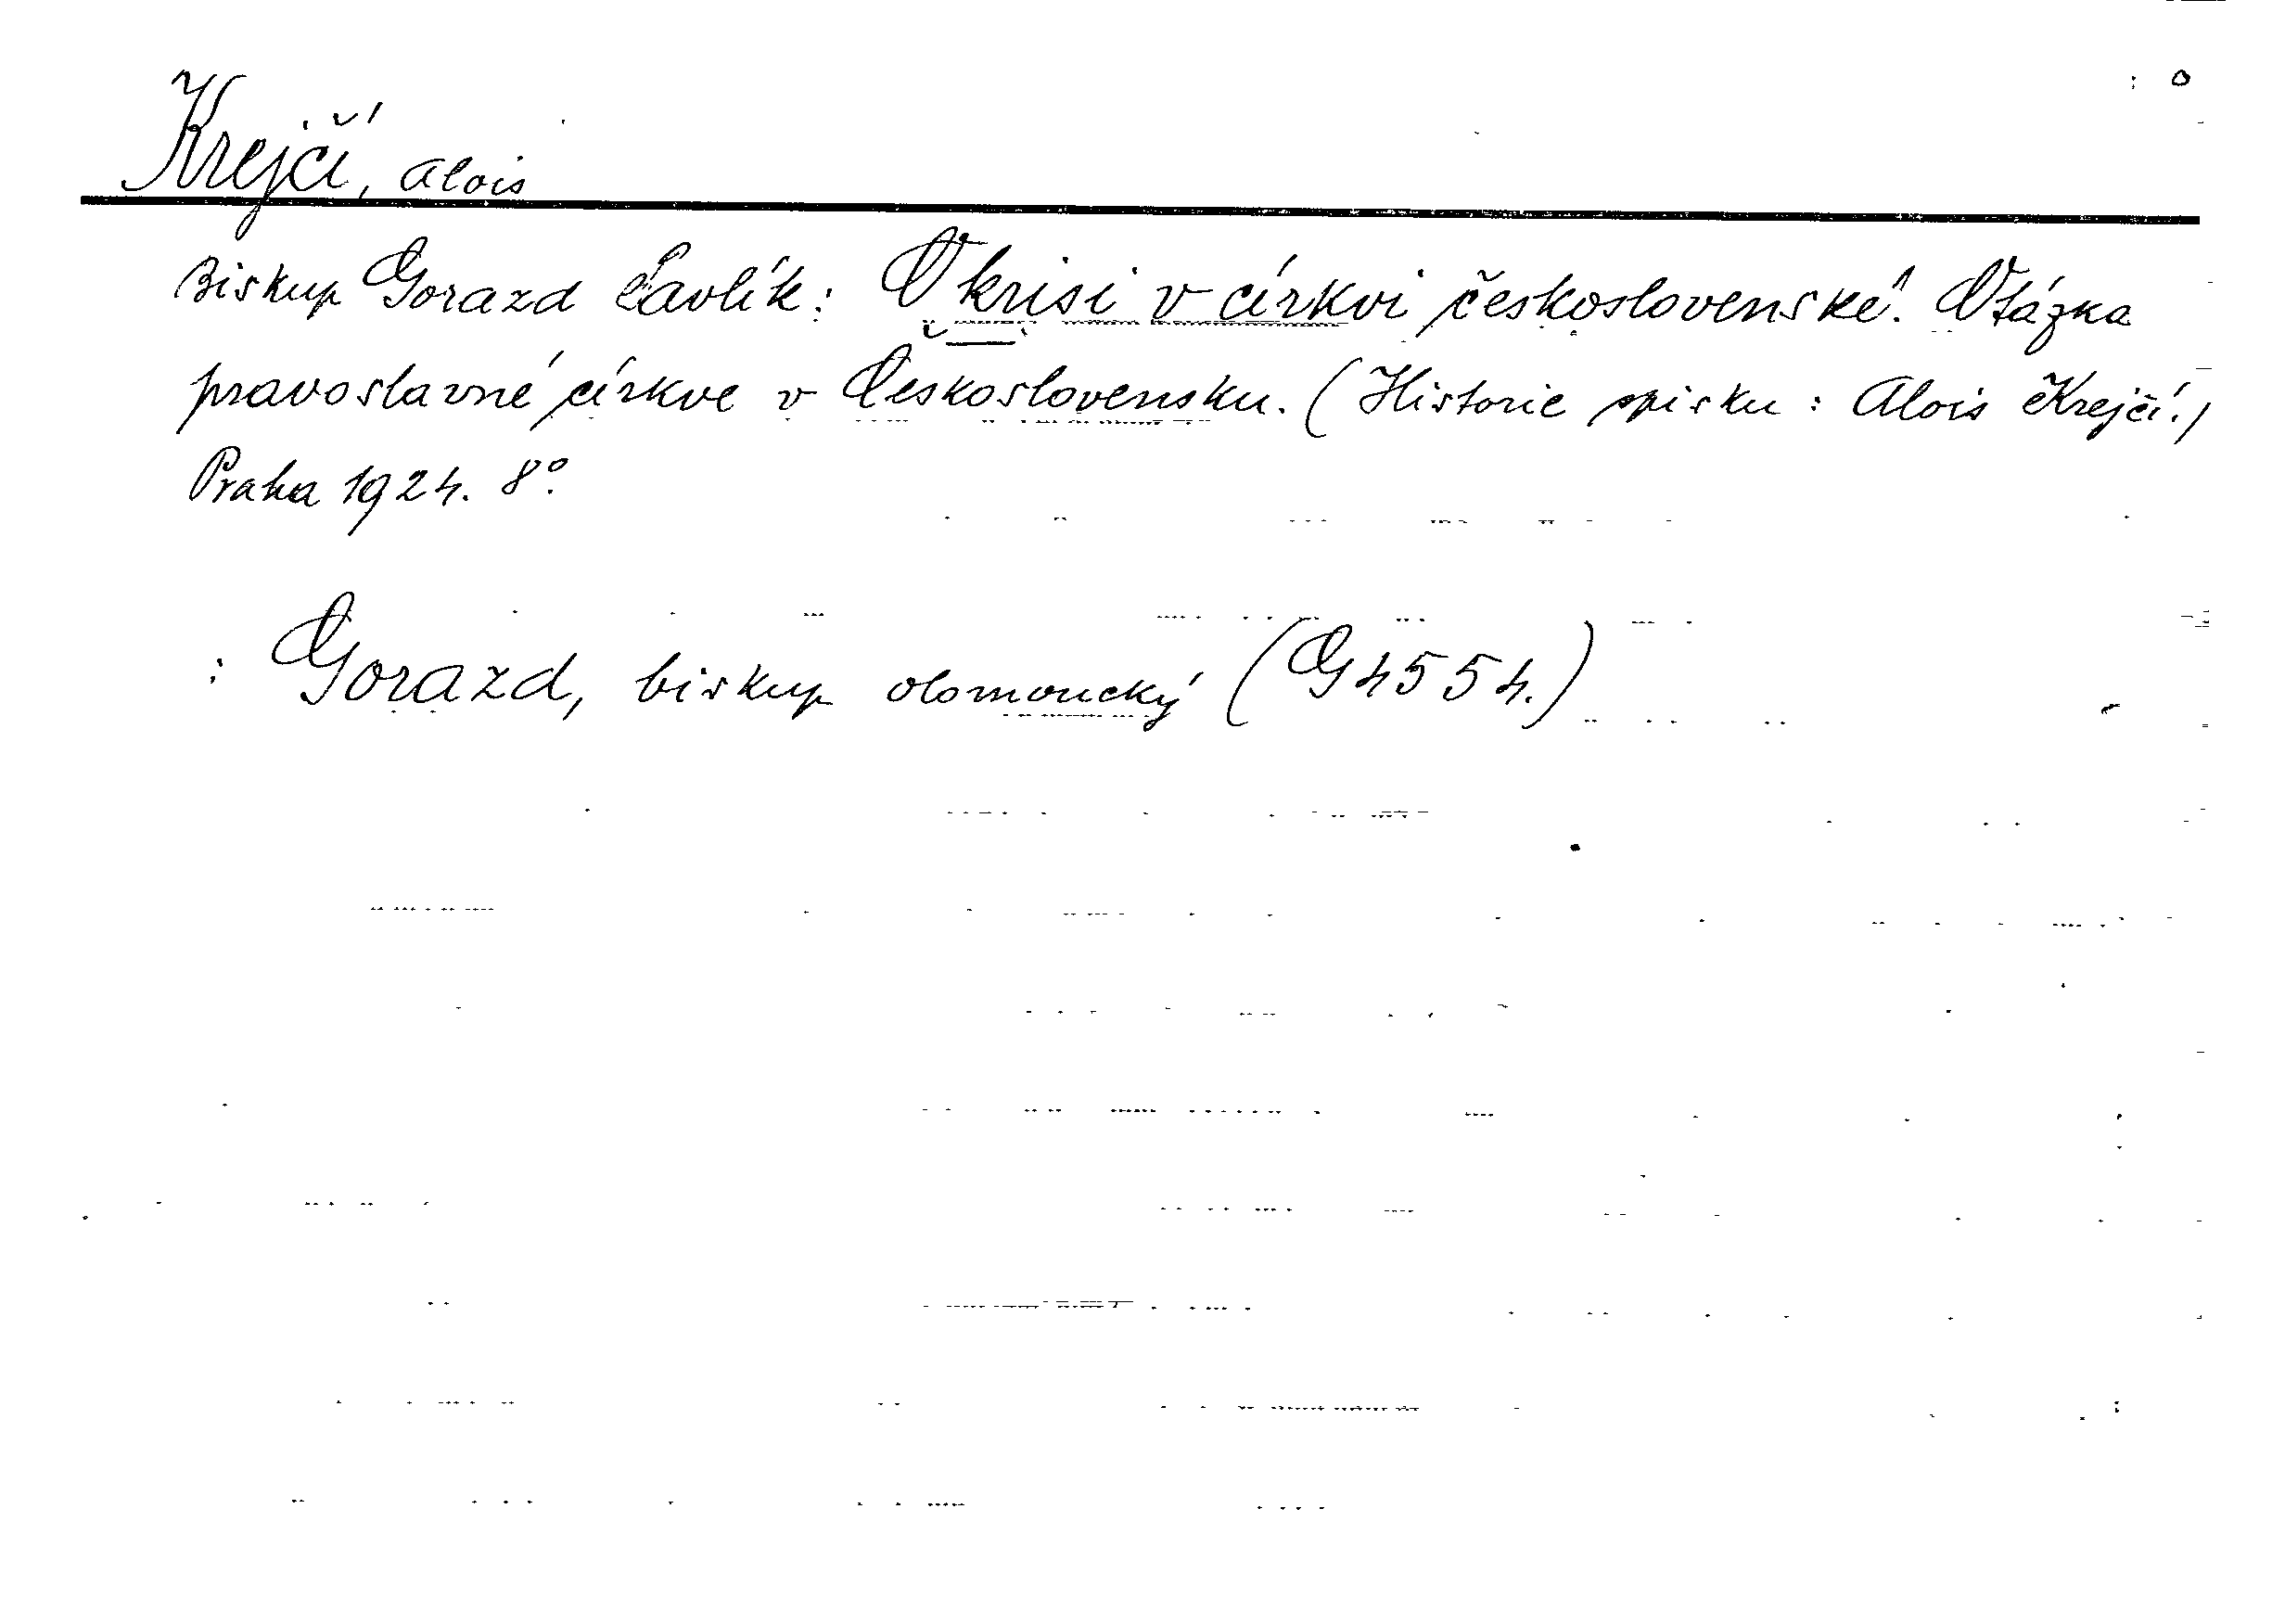 Krejčí, Alois
Biskup Gorazd Pavlík: O krisi v církvi československé. Otázka
pravoslavné církve v Československu. (Historie spisku: Alois Krejčí.)
Praha 1924. 8°.
: Gorazd, biskup olomoucký (G 4554.)